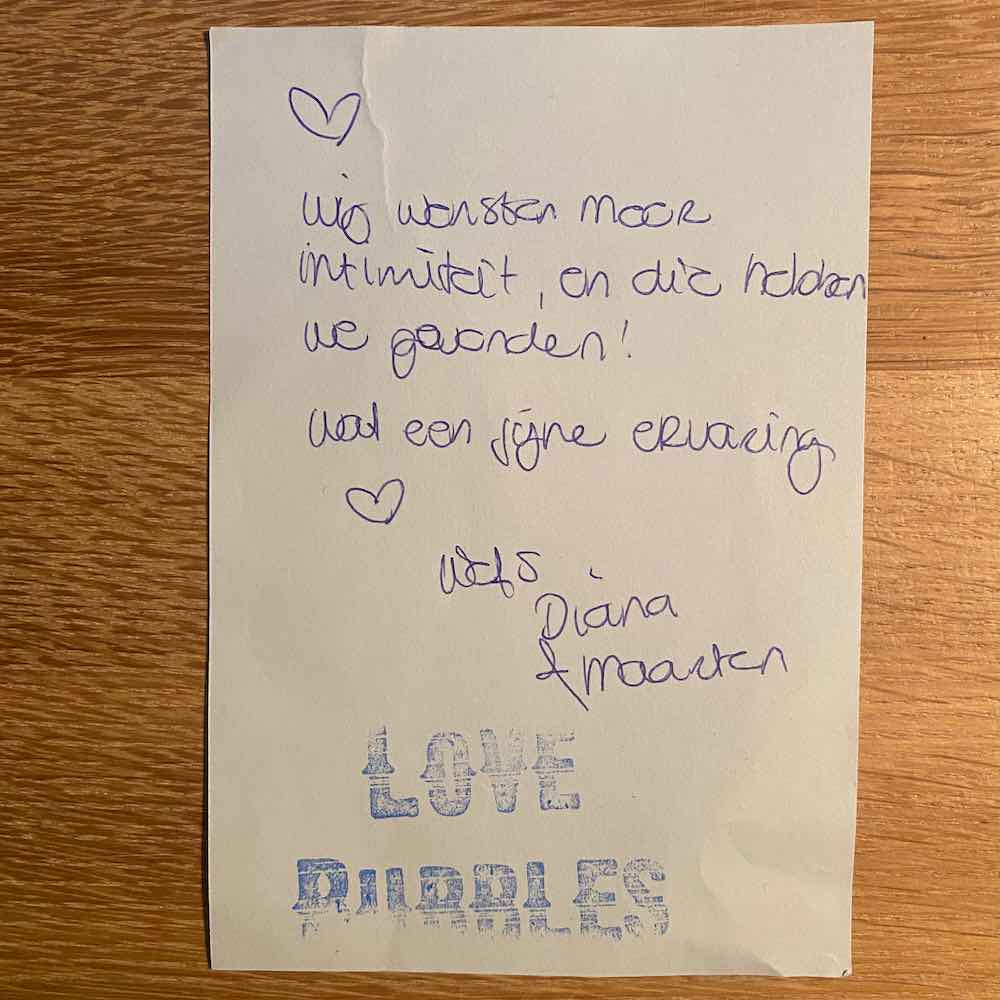 wij wensten meer
intimiteit, en die hebben
we gevonden!
wat een fijne ervaring
liefs
Diana
& Maarten
LOVE
BUBBLES